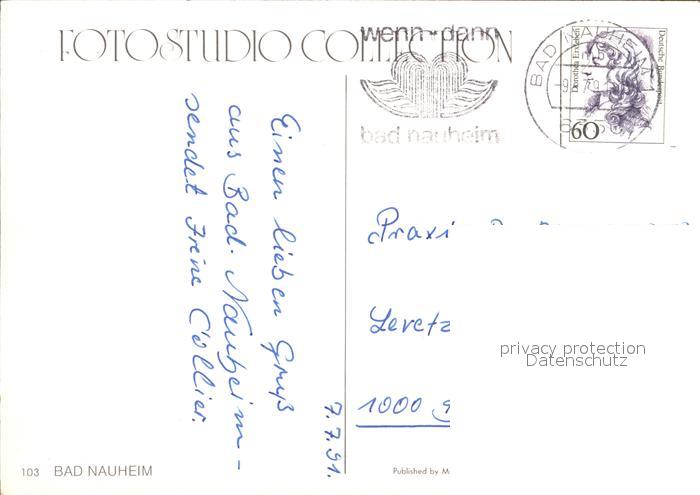 FOTOSTUDIO COLLECTION
wenn-dann
bad nauheim
BAD NAUHEIM
Deutsche Bundespost
Dorothea Erxleben
60
Einen lieben Gruß
aus Bad-Nauheim-
sendet Irene Collier.
7.7.91.
Praxi
Levetz
1000
privacy protection
Datenschutz
103 BAD NAUHEIM
Published by M